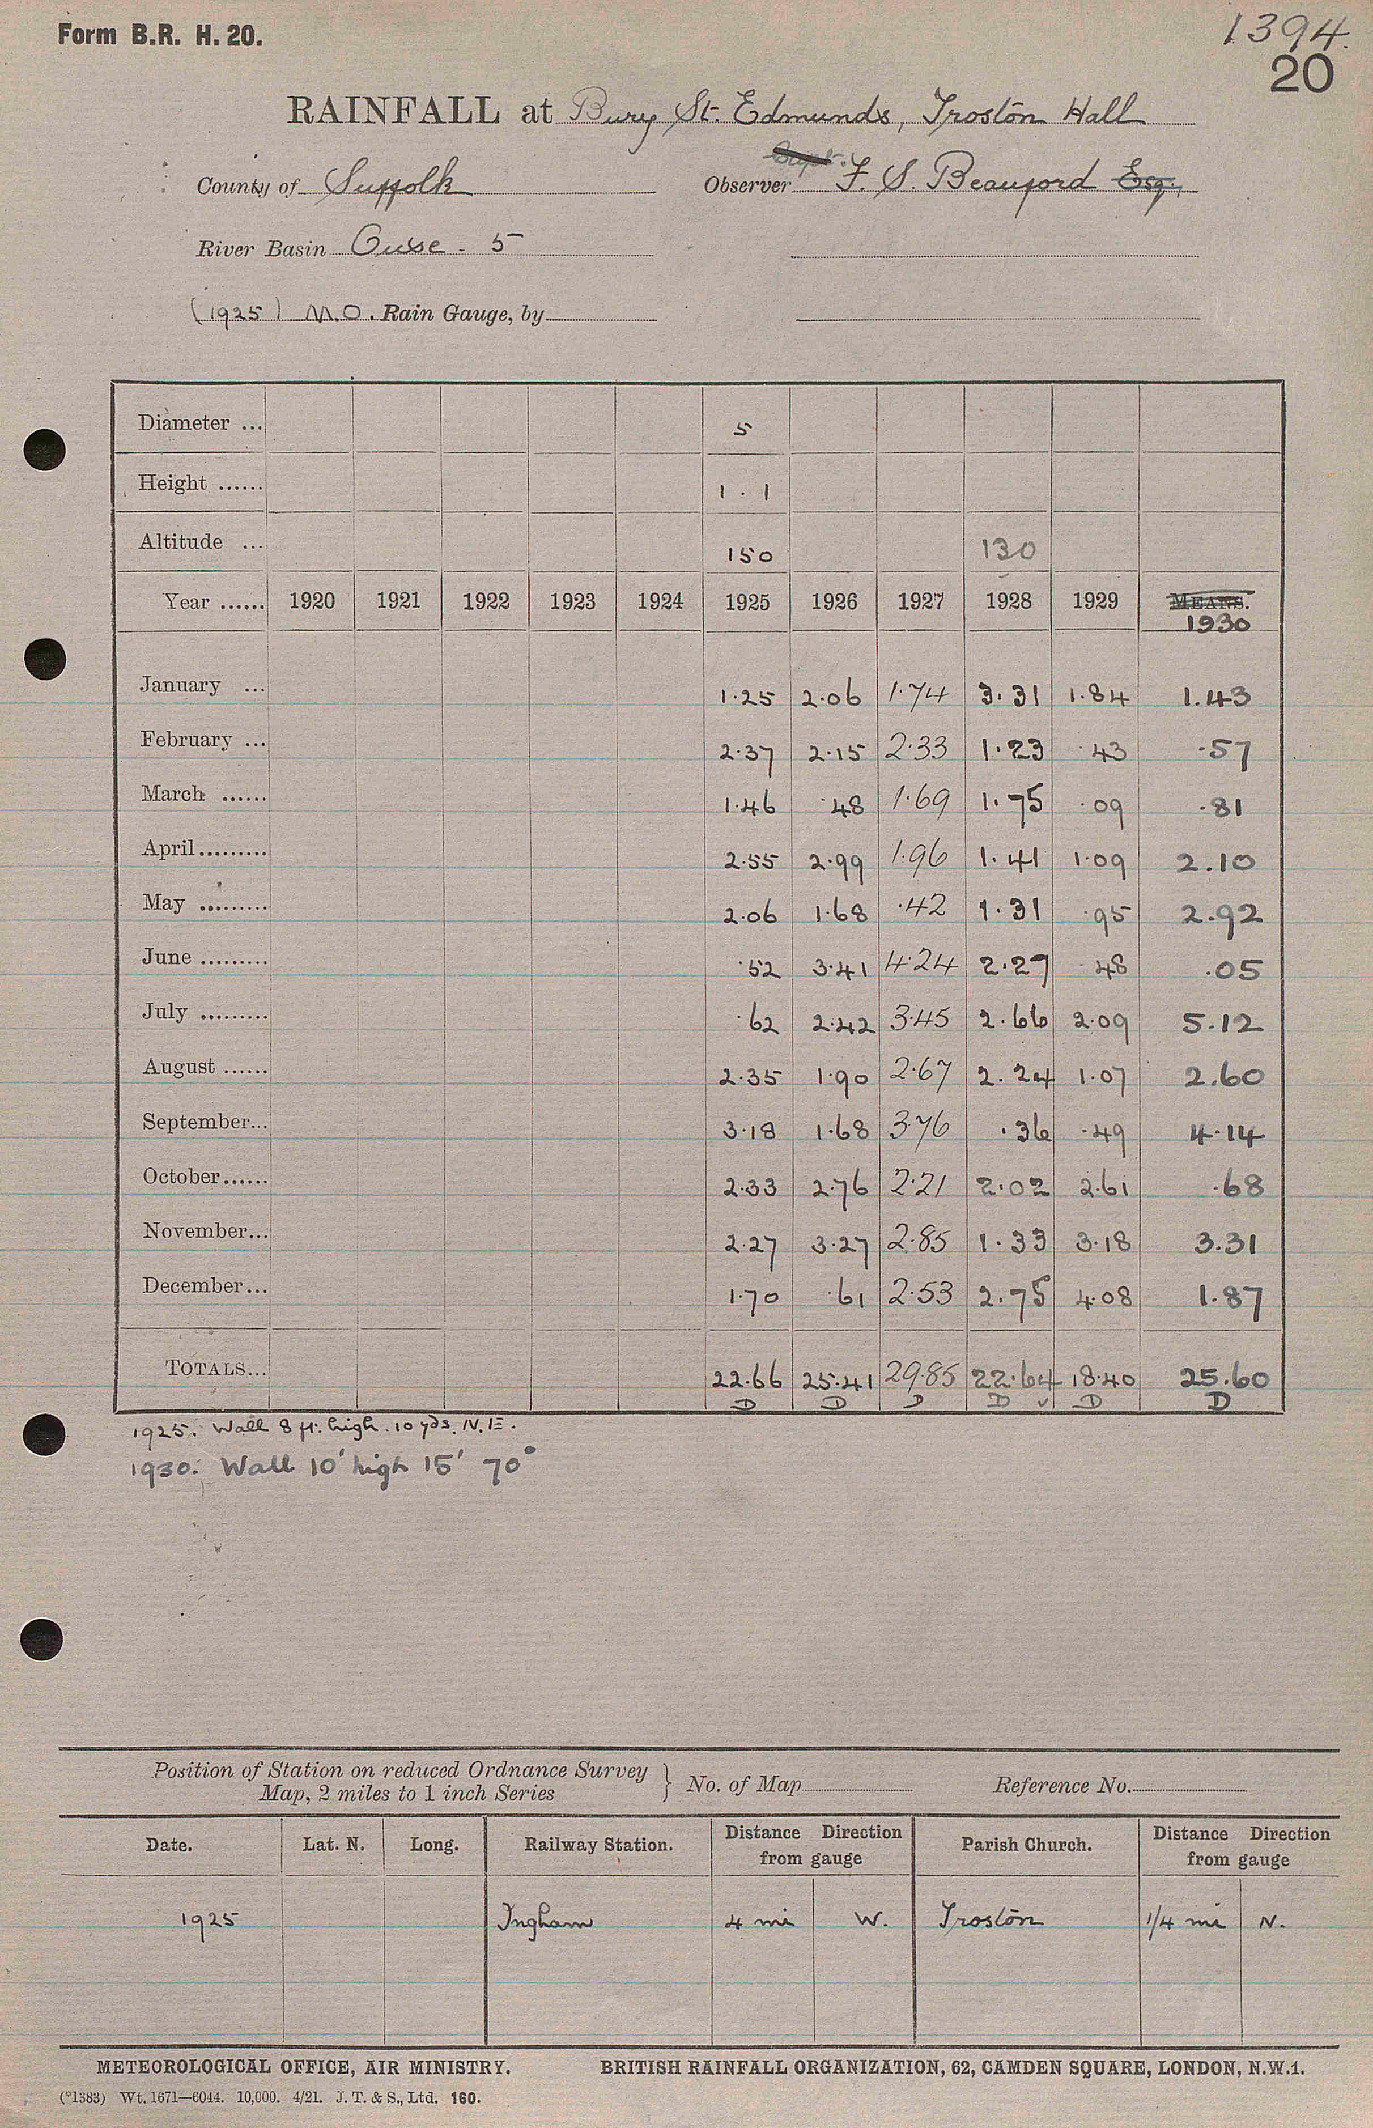 Form B.R. H. 20.
1394.
20
RAINFALL at Bury St. Edmunds, Troston Hall
County of Suffolk
Observer Capt. F. S. Beauford Esq.
River Basin Ouse - 5
(1925) M.O. Rain Gauge, by
Diameter ... 5
Height ...... 1 . 1
Altitude ... 150 130
Year ...... 1920 1921 1922 1923 1924 1925 1926 1927 1928 1929 MEANS.
1930
January ... 1.25 2.06 1.74 3.31 1.84 1.43
February ... 2.37 2.15 2.33 1.23 .43 .57
March ...... 1.46 .48 1.69 1.75 .09 .81
April......... 2.55 2.99 1.96 1.41 1.09 2.10
May ......... 2.06 1.68 .42 1.31 .95 2.92
June ......... .52 3.41 4.24 2.27 .48 .05
July ......... .62 2.42 3.45 2.66 2.09 5.12
August ...... 2.35 1.90 2.67 2.24 1.07 2.60
September... 3.18 1.68 3.76 .36 .49 4.14
October...... 2.33 2.76 2.21 2.02 2.61 .68
November... 2.27 3.27 2.85 1.33 3.18 3.31
December... 1.70 .61 2.53 2.75 4.08 1.87
TOTALS... 22.66 25.41 29.85 22.64 18.40 25.60
D D D D v D D
1925. Wall 8 ft. high. 10 yds. N.E.
1930. Wall 10' high 15' 70°
Position of Station on reduced Ordnance Survey
Map, 2 miles to 1 inch Series } No. of Map Reference No.
Date. Lat. N. Long. Railway Station. Distance Direction from gauge Parish Church. Distance Direction from gauge
1925 Ingham 4 mi W. Troston 1/4 mi N.
METEOROLOGICAL OFFICE, AIR MINISTRY. BRITISH RAINFALL ORGANIZATION, 62, CAMDEN SQUARE, LONDON, N.W.1.
(*1383) Wt. 1671—6044. 10,000. 4/21. J. T. & S., Ltd. 160.